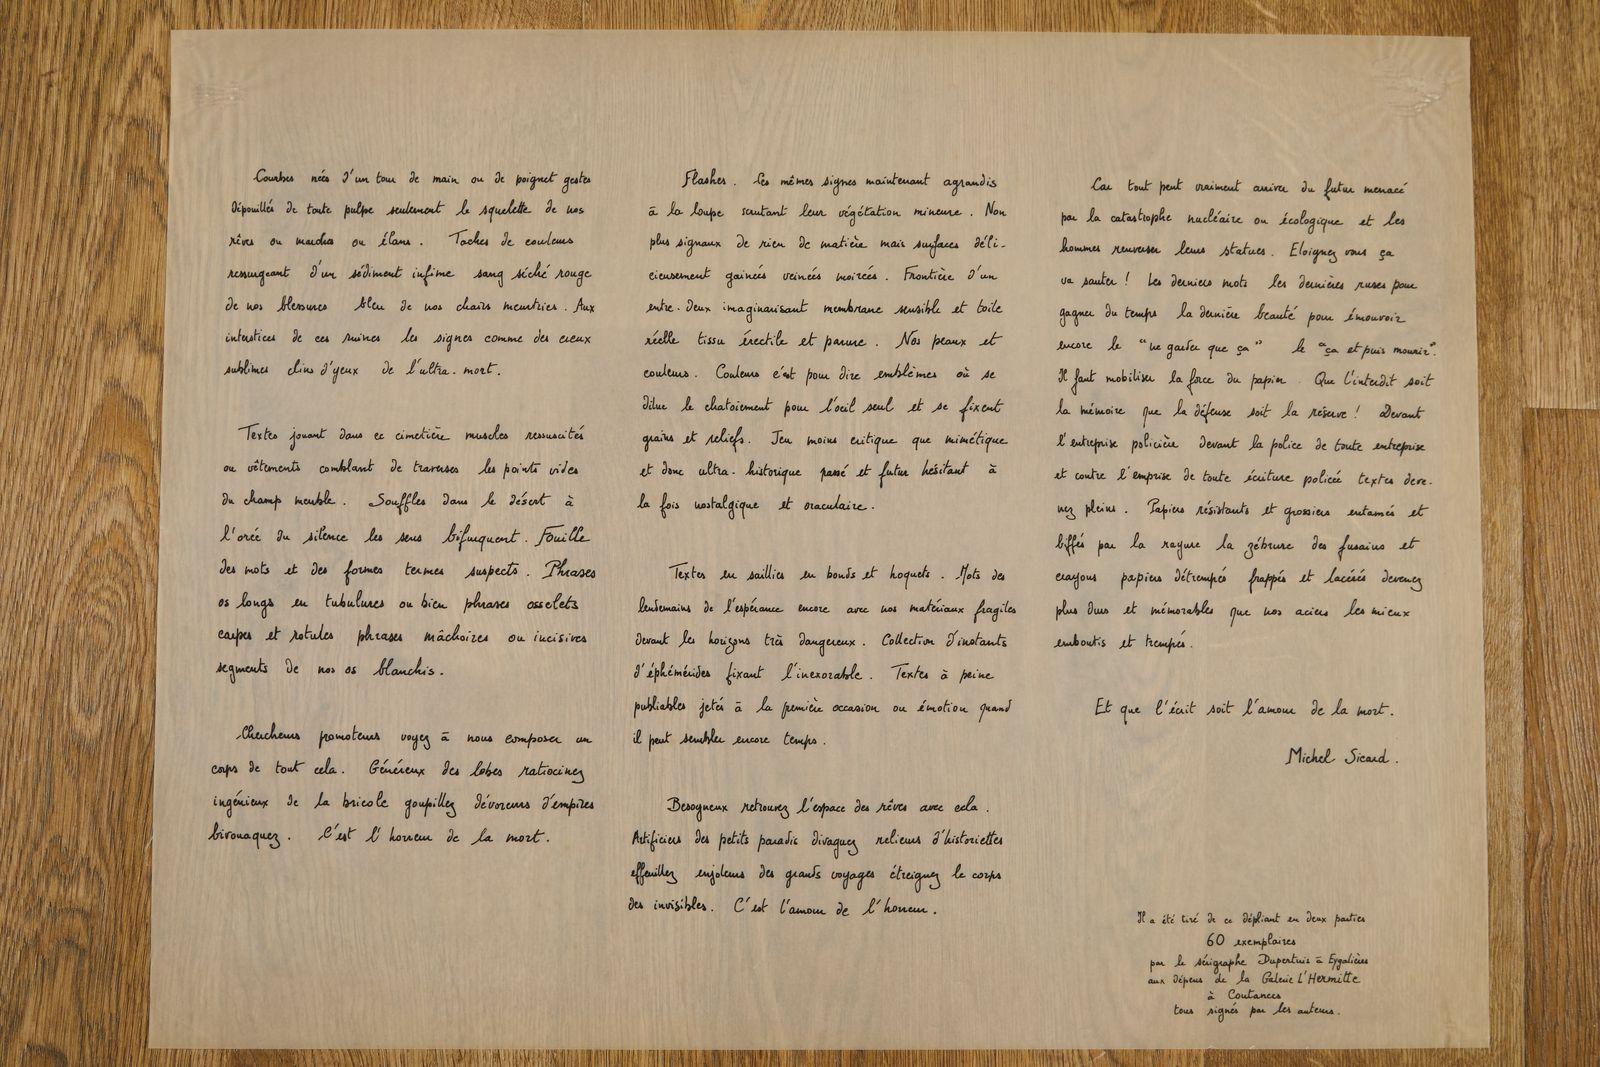 Courbes nées d'un tour de main ou de poignet gestes
dépouillés de toute pulpe seulement le squelette de nos
rêves ou marches ou élans. Taches de couleurs
ressurgeant d'un sédiment infime sang séché rouge
de nos blessures bleu de nos chairs meurtries. Aux
interstices de ces ruines les signes comme des cieux
sublimes clins d'yeux de l'ultra-mort.
Textes jouant dans ce cimetière muscles ressuscités
ou vêtements comblant de traverses les points vides
du champ meuble. Souffles dans le désert à
l'orée du silence les sens bifurquent. Fouille
des mots et des formes termes suspects. Phrases
os longs en tubulures ou bien phrases osselets
carpes et rotules phrases mâchoires ou incisives
segments de nos os blanchis.
Chercheurs promoteurs voyez à nous composer un
corps de tout cela. Généreux des lobes ratiocinez
ingénieux de la bricole goupillez dévoreurs d'empires
bivouaquez. C'est l'horreur de la mort.
Flashes. Ces mêmes signes maintenant agrandis
à la loupe scrutant leur végétation mineure. Non
plus signaux de rien de matière mais surfaces déli-
cieusement gainées veinées moirées. Frontière d'un
entre-deux imaginarisant membrane sensible et toile
réelle tissu érectile et parure. Nos peaux et
couleurs. Couleurs c'est pour dire emblèmes où se
dilue le chatoiement pour l'oeil seul et se fixent
grains et reliefs. Jeu moins critique que mimétique
et donc ultra-historique passé et futur hésitant à
la fois nostalgique et oraculaire.
Textes en saillies en bonds et hoquets. Mots des
lendemains de l'espérance encore avec nos matériaux fragiles
devant les horizons très dangereux. Collection d'instants
d'éphémérides fixant l'inexorable. Textes à peine
publiables jetés à la première occasion ou émotion quand
il peut sembler encore temps.
Besogneux retrouvez l'espace des rêves avec cela.
Artificiers des petits paradis divaguez relieurs d'historiettes
effeuillez enjoleurs des grands voyages étreignez le corps
des invisibles. C'est l'amour de l'horreur.
Car tout peut vraiment arriver du futur menacé
par la catastrophe nucléaire ou écologique et les
hommes renverser leurs statues. Eloignez vous ça
va sauter! Les derniers mots les dernières ruses pour
gagner du temps la dernière beauté pour émouvoir
encore le "ne garder que ça" le "ça et puis mourir".
Il faut mobiliser la force du papier. Que l'interdit soit
la mémoire que la défense soit la réserve! Devant
l'entreprise policière devant la police de toute entreprise
et contre l'emprise de toute écriture policée textes deve-
nez pleins. Papiers résistants et grossiers entamés et
biffés par la rayure la zébrure des fusains et
crayons papiers détrempés frappés et lacérés devenez
plus durs et mémorables que nos aciers les mieux
emboutis et trempés.
Et que l'écrit soit l'amour de la mort.
Michel Sicard.
Il a été tiré de ce dépliant en deux parties
60 exemplaires
par le sérigraphe Dupertuis à Eygalières
aux dépens de la Galerie L'Hermitte
à Coutances
tous signés par les auteurs.